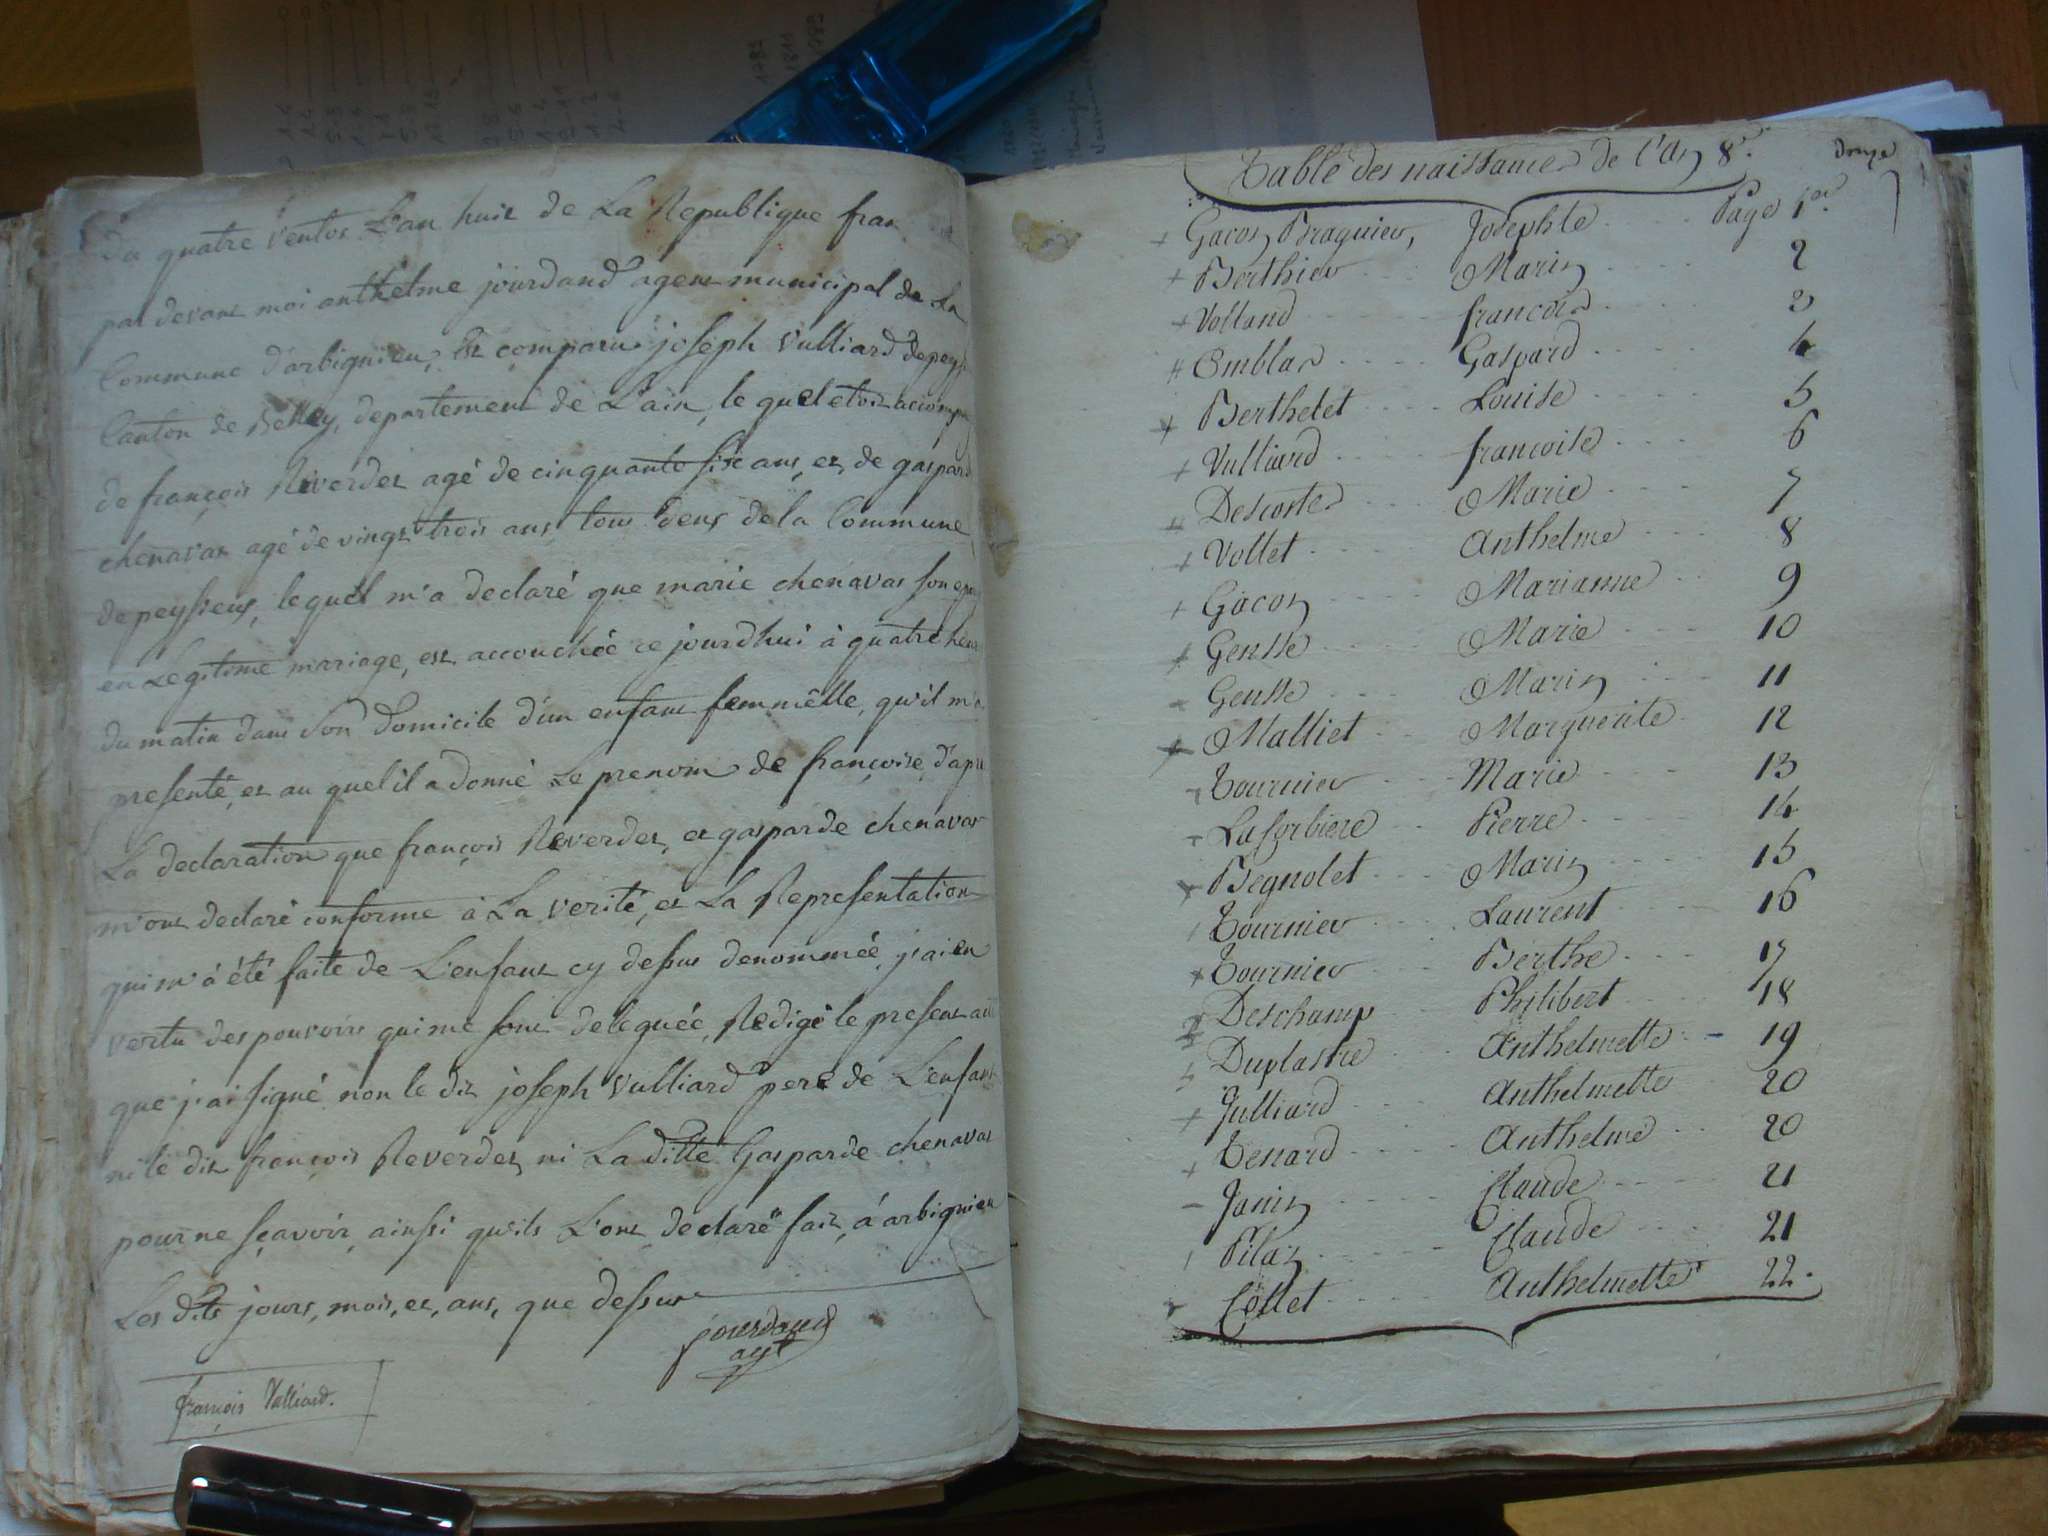 Du quatre ventos L'an huit de La Republique fran
par devant moi anthelme jourdand agent municipal de La
Commune d'arbignieu, est comparu joseph Vulliard de peys
Canton de Belley, departement de L'ain, le quel etoit accomp
de françois Reverdet agé de cinquante six ans, et de gasparde
chenavat agé de vingt trois ans, tous deux de la Commune
de peyssieux, lequel m'a declaré que marie chenavas son epou
en Legitime mariage, est accouchée ce jourdhui à quatre heur
du matin dans son Domicile d'un enfant femmêlle, qu'il m'a
presenté, et au quel il a donné Le prenom de françoise, d'apre
La declaration que françois Reverdet, et gasparde chenavas
m'ont declaré conforme à La verité, et La Representation
qui m'à été faite de L'enfant cy dessus denommée, j'ai en
vertu des pouvoirs qui me sont deleguée, Redigé le present act
que j'ai signé non le dit joseph Vulliard pere de L'enfant
ni le dit françois Reverdet, ni La ditte Gasparde chenavat
pour ne sçavoir, ainsi qu'ils L'ont declaré fait, á arbignieu
Les dits jours, mois, et, ans, que dessus
jourdand
agt
françois Valliard.
Table des naissances de l'an 8e. douze
Gacon Braguier, Josephte Page 1er
Berthier Marin 2
Volland francois 3
Emblas Gaspard 4
Berthelet Louise 5
Vulliard francoise 6
Descostes Marie 7
Vollet Anthelme 8
Gacon Marianne 9
Gensse Marie 10
Gensse Marin 11
Malliet Marguerite 12
Tournier Marie 13
Lasorbiere Pierre 14
Begnolet Marin 15
Tournier Laurent 16
Tournier Berthe 17
Deschamp Philibert 18
Duplastre Anthelmette 19
Julliard Anthelmette 20
Tenard Anthelme 20
Janin Claude 21
Pilaz Claude 21
Collet Anthelmette 22.